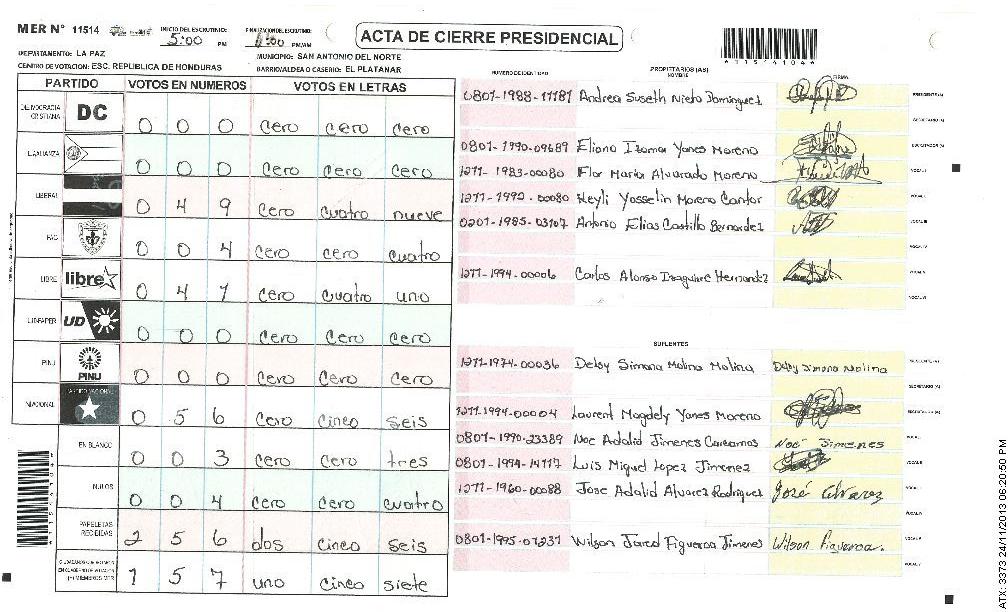 MER N° 11514
INICIO DEL ESCRUTINIO: 5:00 PM
FINALIZACION DEL ESCRUTINIO: :00 PM/AM
ACTA DE CIERRE PRESIDENCIAL
*11514104*
DEPARTAMENTO: LA PAZ
MUNICIPIO: SAN ANTONIO DEL NORTE
CENTRO DE VOTACION: ESC. REPUBLICA DE HONDURAS
BARRIO/ALDEA O CASERIO: EL PLATANAR
PARTIDO VOTOS EN NUMEROS VOTOS EN LETRAS
DEMOCRACIA CRISTIANA DC 0 0 0 cero cero cero
LIBERAL 0 4 9 cero cuatro nueve
PAC 0 0 4 cero cero cuatro
LIBRE libre 0 4 1 cero cuatro uno
UD 0 0 0 cero cero cero
PINU PINU 0 0 0 cero cero cero
NACIONAL PARTIDO NACIONAL 0 5 6 cero cinco seis
EN BLANCO 0 0 3 cero cero tres
NULOS 0 0 4 cero cero cuatro
PAPELETAS RECIBIDAS 2 5 6 dos cinco seis
1 5 7 uno cinco siete
NUMERO DE IDENTIDAD PROPIETARIOS (AS) NOMBRE FIRMA
0801-1988-11181 Andrea Suseth Nieto Dominguez
0801-1990-09689 Eliana Yanes Moreno
1211-1983-00080 Flor Maria Alvarado Moreno
1211-1992-00080 Keyli Yosselin Moreno Cantor
0201-1985-03107 Antonio Elias Castillo Bernardez
1211-1994-00006 Carlos Alonso Izaguirre Hernandez
SUPLENTES
1211-1974-00036 Delsy Simona Molina Molina Delsy Simona Molina
1211-1994-00004 Laurent Magdely Yanes Moreno
0801-1990-23389 Noe Adalid Jimenes Noé Jimenes
0801-1974-14117 Luis Miguel Lopez Jimenez
1211-1960-00088 Jose Adalid Alvarez Rodriguez José Alvarez
0801-1995-07231 Wilson Jared Figueroa Jimenes Wilson Figueroa.
ATX: 3373 24/11/2013 06:20:50 PM